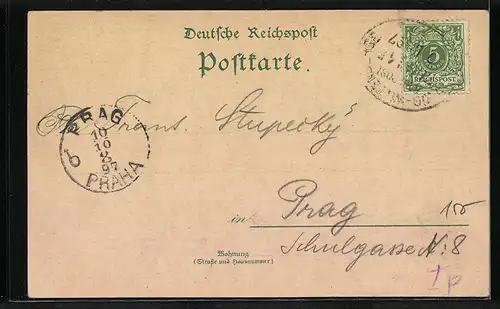 Deutsche Reichspost
Postkarte.
5
REICHSPOST
PRAG
10
10
97
PRAHA
Franz Stupecký
in Prag
Schulgasse N: 8
Wohnung
(Straße und Hausnummer)
150
1p